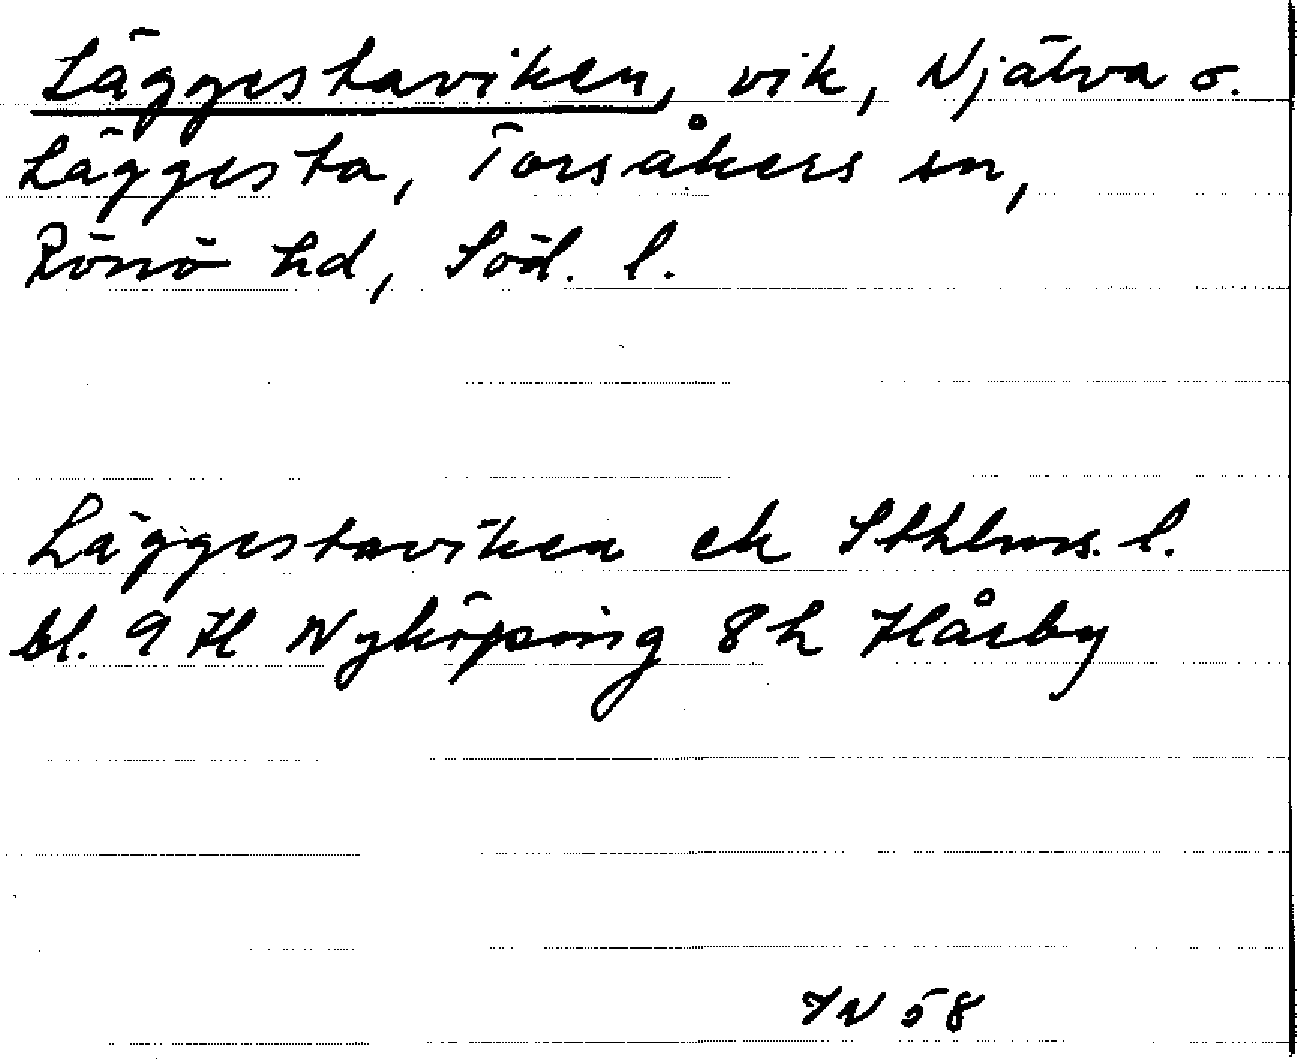 Läggestaviken, vik, Njälva o.
Läggesta, Torsåkers sn,
Rönö hd, Söd. l.
Läggestaviken ek Sthlms. l.
bl. 9 H Nyköping 8 h Hårby
IN 58